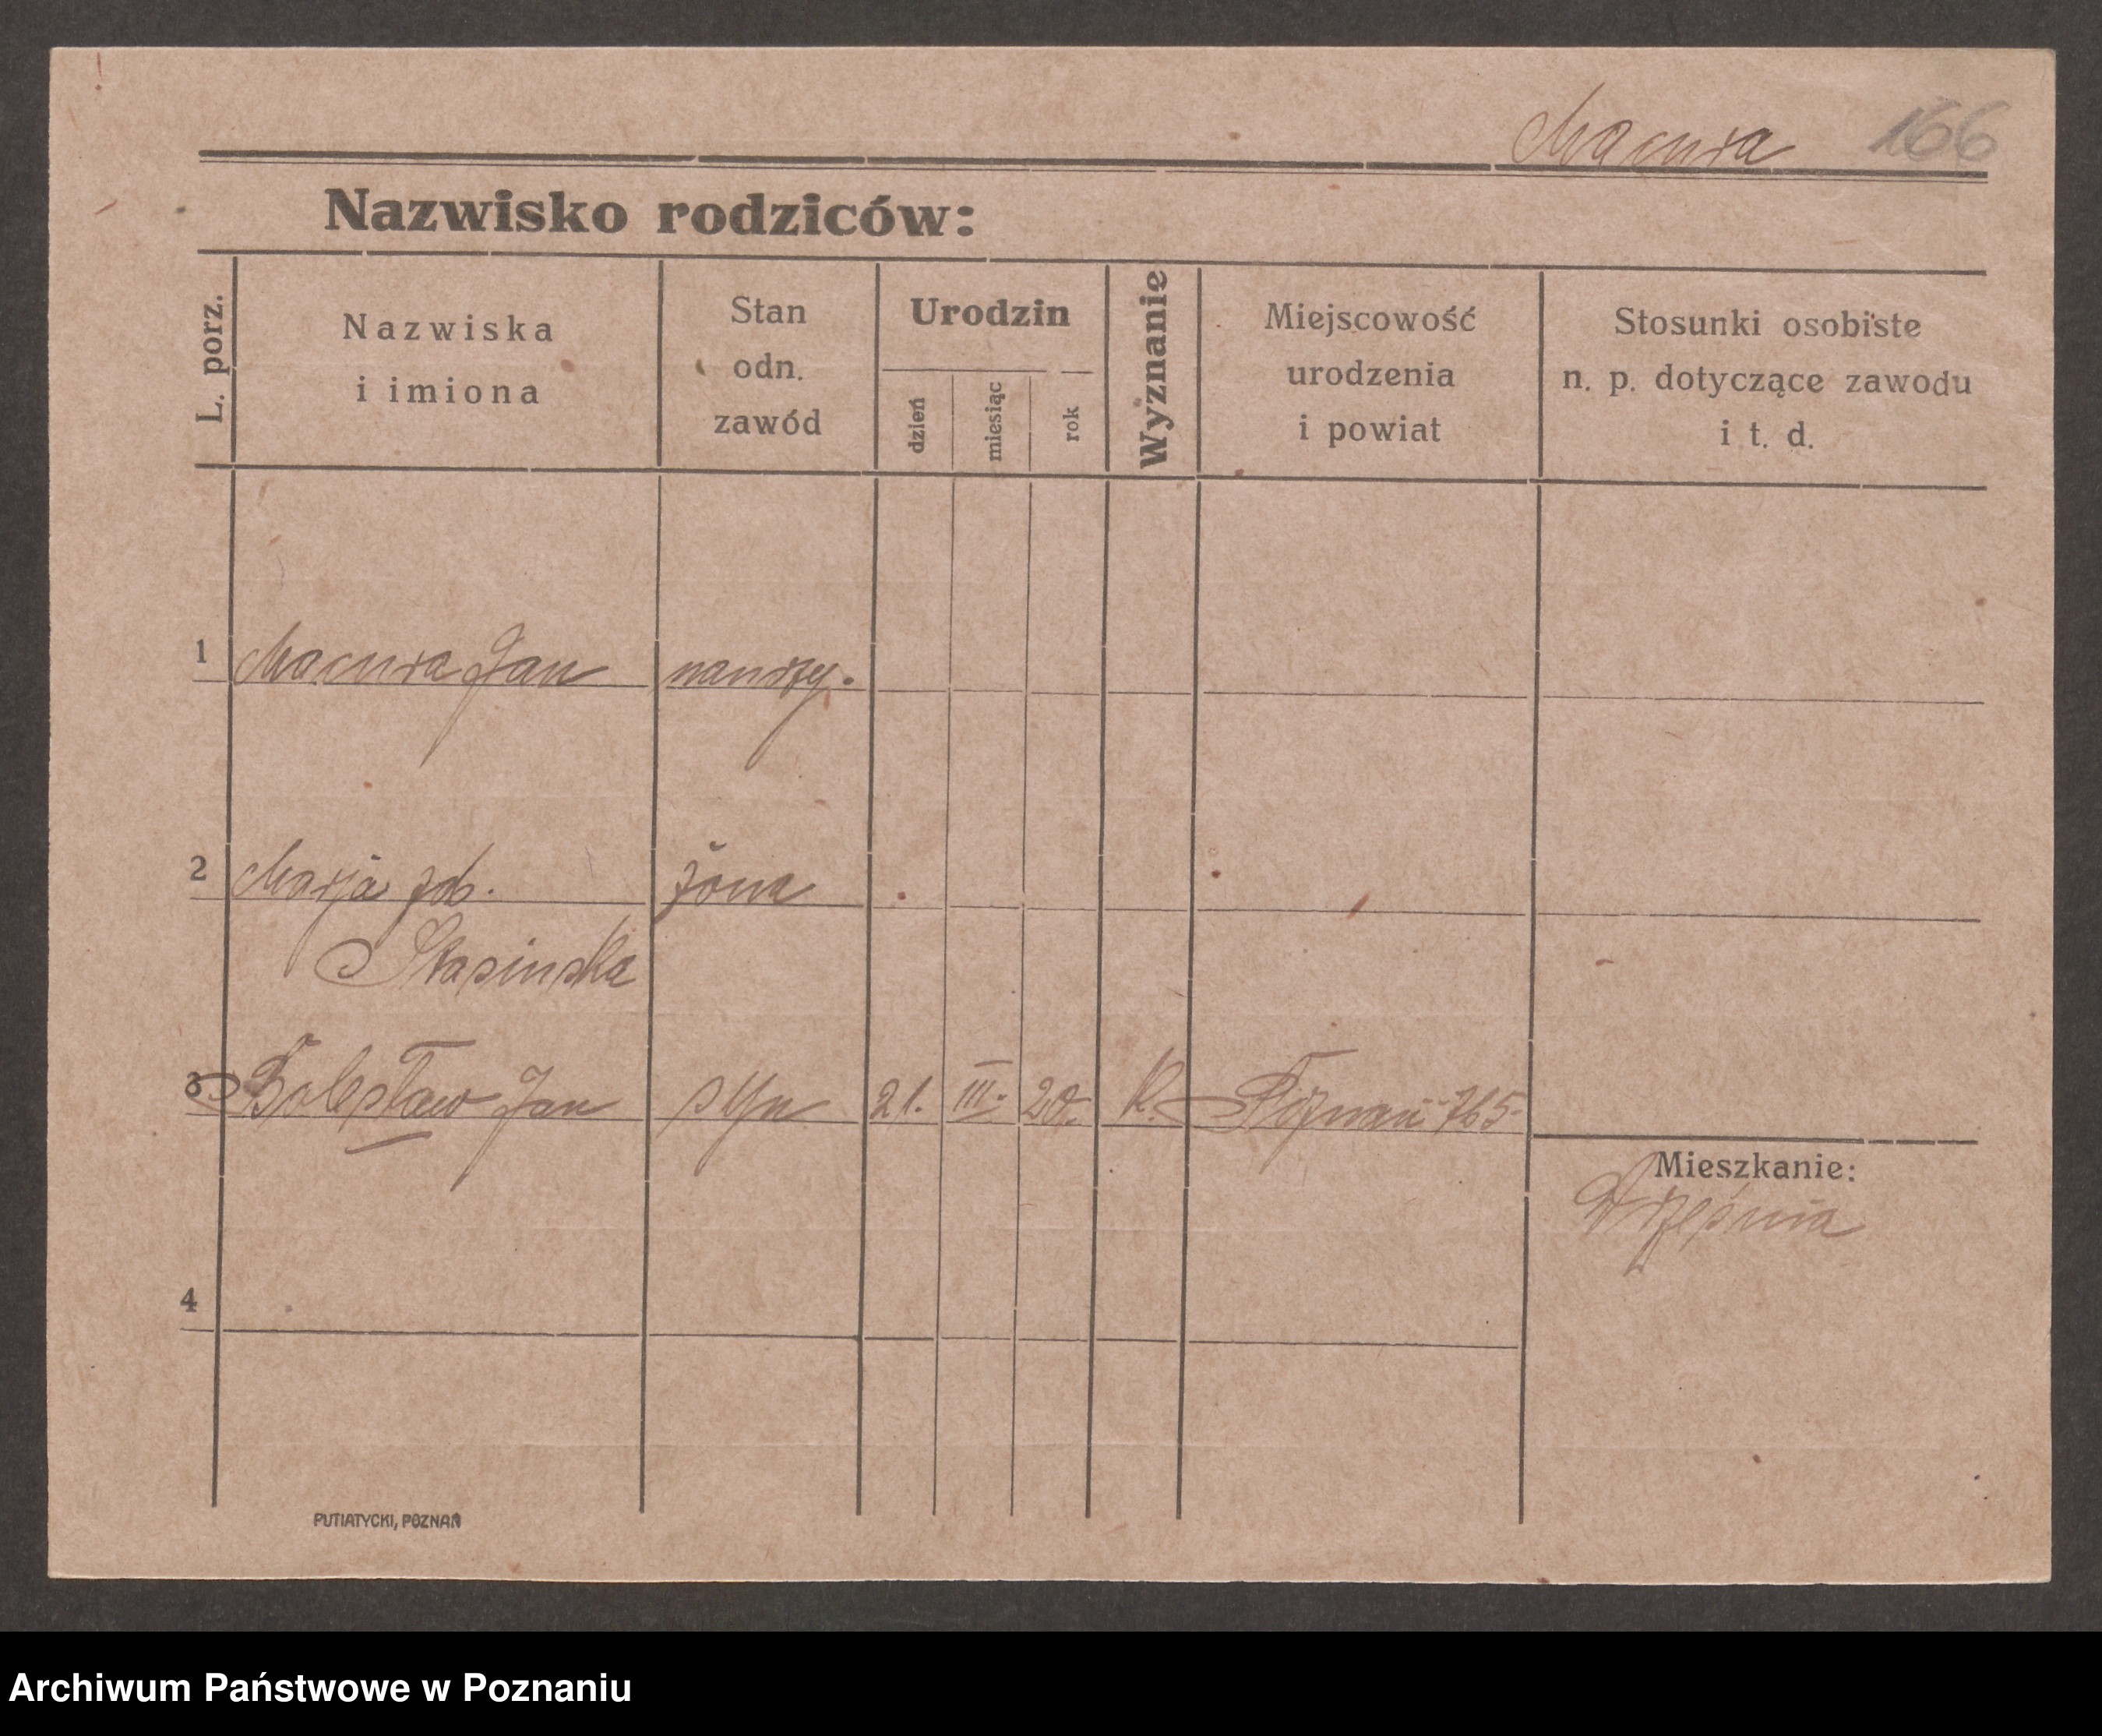 Macura 166
Nazwisko rodziców:
L. porz.
Nazwiska
i imiona
Stan
odn.
zawód
Urodzin
dzień
miesiąc
rok
Wyznanie
Miejscowość
urodzenia
i powiat
Stosunki osobiste
n. p. dotyczące zawodu
i t. d.
1 Macura Jan
2 Marja żona
Stasinska
3 Bolesław Jan syn 21. III. 20. K. Poznań 765
Mieszkanie:
Września
4
PUTIATYCKI, POZNAŃ
Archiwum Państwowe w Poznaniu